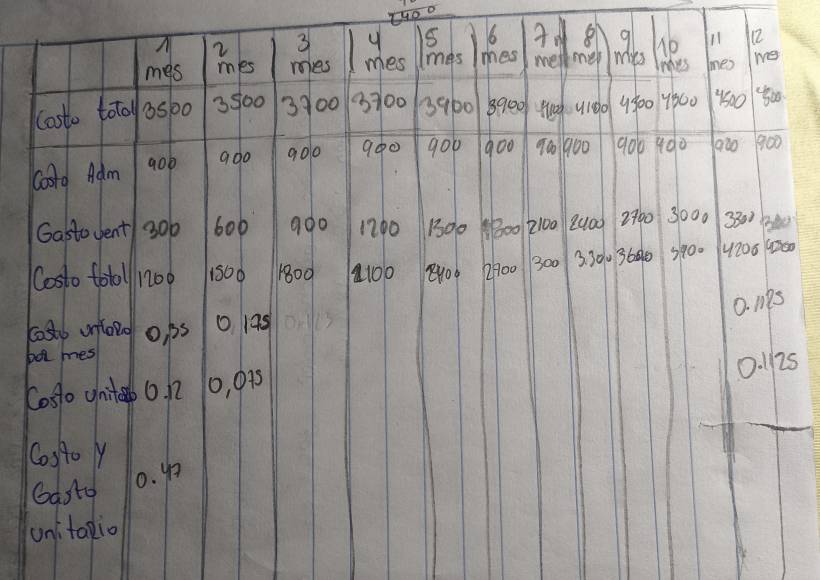 2400
1 mes 2 mes 3 mes 4 mes 5 mes 6 mes 7 mes 8 mes 9 mes 10 mes 11 mes 12 mes
Costo total 3500 3500 3700 3700 3900 3900 4100 4100 4300 4300 4500 4500
Costo Adm 900 900 900 900 900 900 900 900 900 900 900 900
Gasto vent 300 600 900 1200 1500 1800 2100 2400 2700 3000 3300
Costo total 1200 1500 1800 2100 2400 2700 300 3.300 3600 3900 4200 4500
Costo unitario por mes 0,35 0,175 0.1125
Costo unitario 0.12 0,075 0.1125
Costo y Gasto unitario 0.47